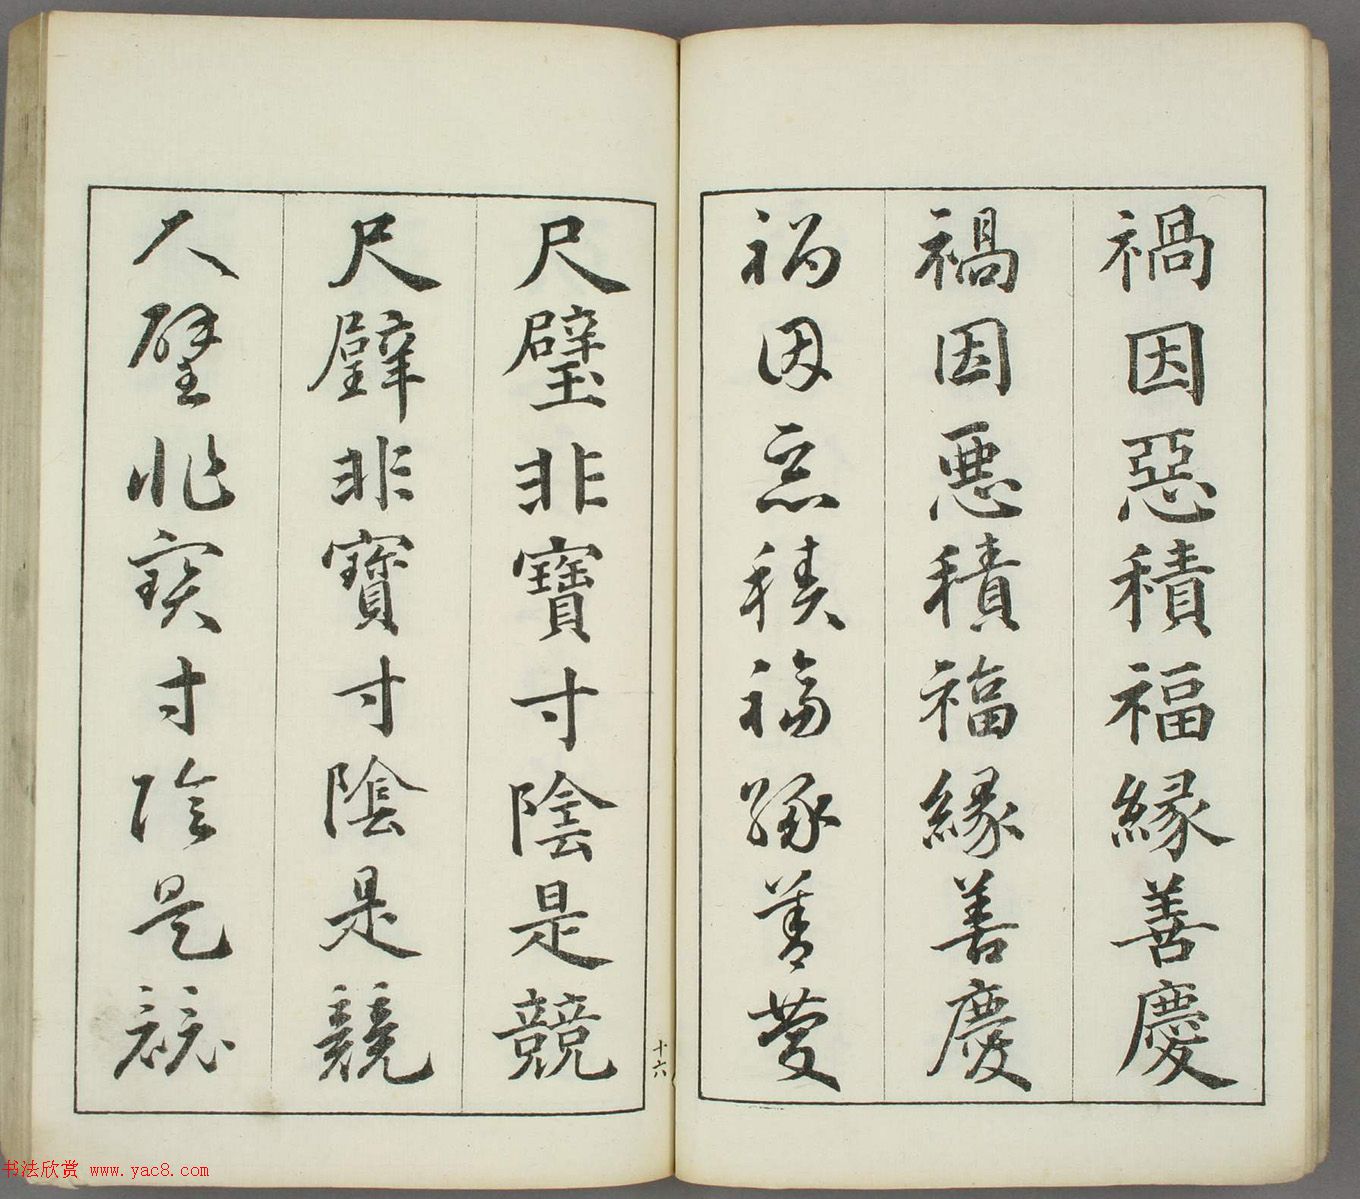 禍因惡積福緣善慶
禍因惡積福緣善慶
禍因惡積福緣善慶
尺璧非寶寸陰是競
尺璧非寶寸陰是競
尺璧非寶寸陰是競
十六
书法欣赏 www.yac8.com